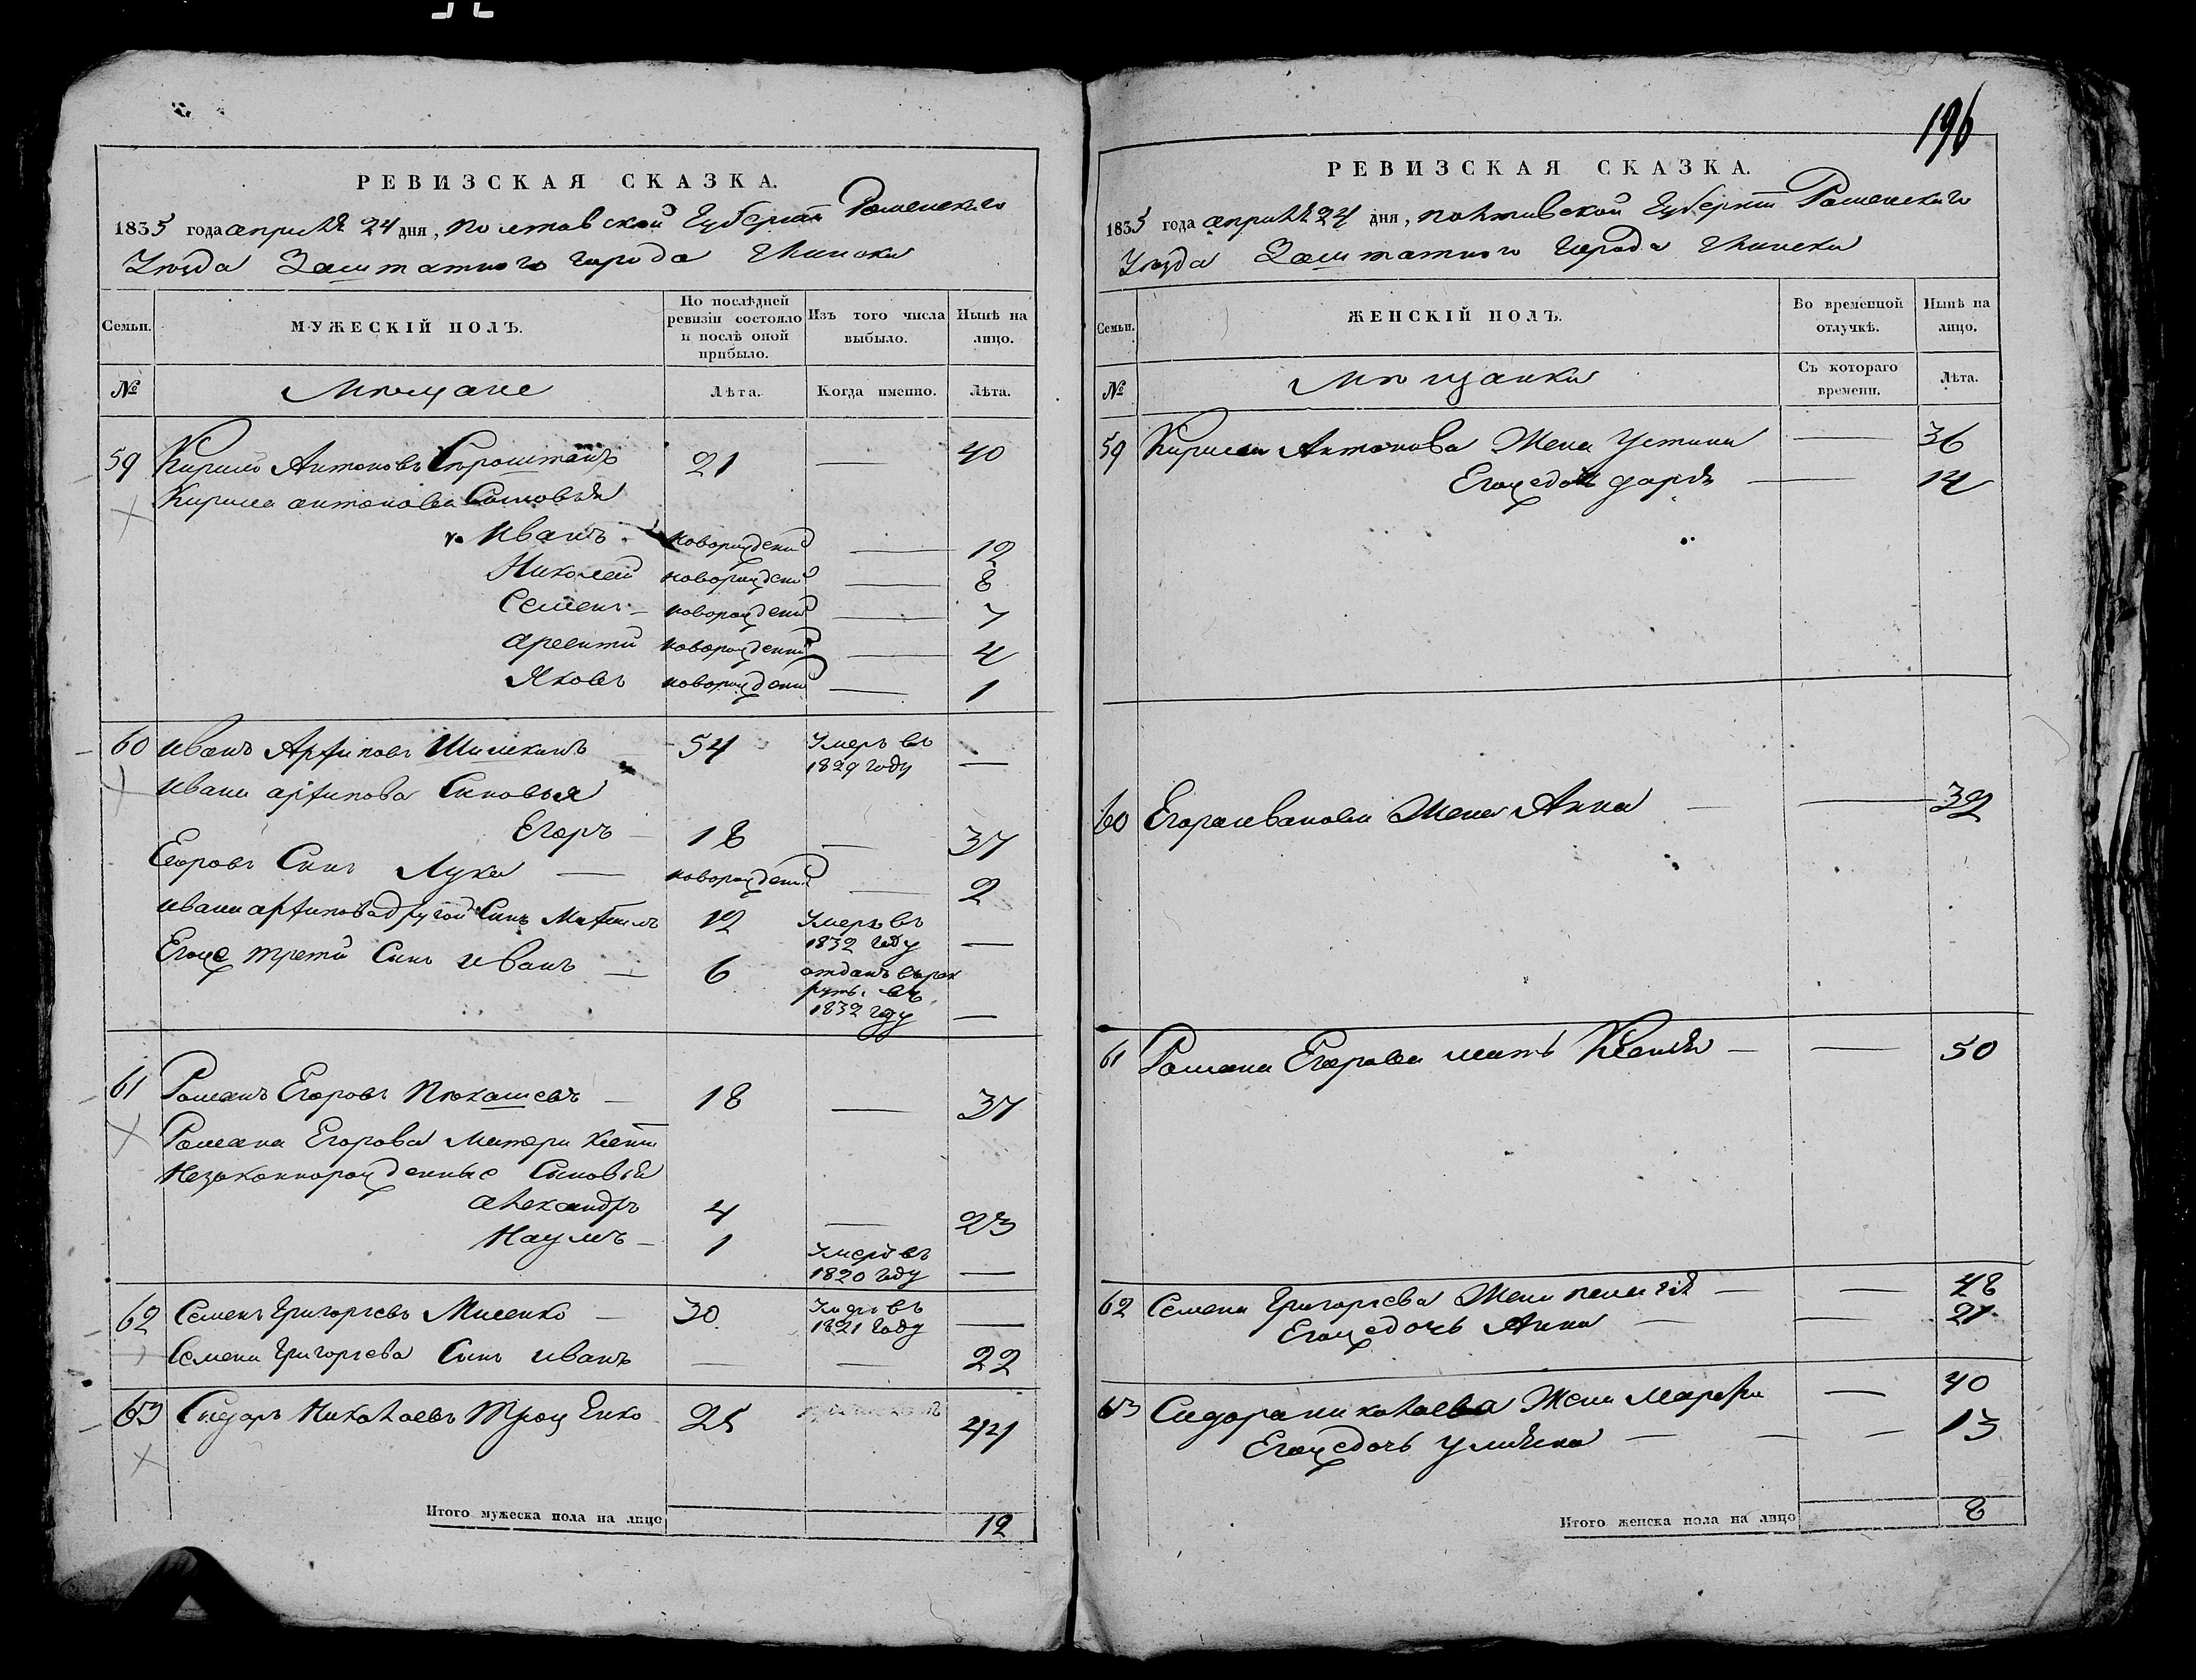 196
РЕВИЗСКАЯ СКАЗКА.
1835 года апреля 24 дня, полтавской Губернии Роменского
Уезда Заштатного города Глинска
Семьи.
МУЖЕСКІЙ ПОЛЪ.
По послѣдней ревизіи состояло и послѣ оной прибыло.
Изъ того числа выбыло.
Нынѣ на лицо.
№
Мещане
Лѣта.
Когда именно.
Лѣта.
59 Кирило Антоновъ 21 — 40
Кирила антонова Сыновья
Иванъ новорожденный — 12
Николай новорожденный — 8
Семенъ — новорожденный — 7
арсентий новорожденный — 4
Яковъ новорожденный — 1
60 Иванъ Архиповъ Шишкинъ 54 Умеръ въ 1829 году —
Ивана архипова Сыновья
Егоръ — 18 — 37
Егоровъ Сынъ Лука — новорожденный — 2
Ивана архипова другой Сынъ 12 Умеръ въ 1832 году —
Егоже третий Сынъ Иванъ — 6 отданъ въ рекруты въ 1832 году —
61 Романъ Егоровъ — 18 — 37
Романа Егорова Матери
Незаконнорожденные Сыновья
александръ 4 — 23
Наумъ — 1 Умеръ въ 1820 году —
62 Семенъ Григорьевъ Мисенко — 30 Умеръ въ 1821 году —
Семена Григорьева Сынъ Иванъ — — 22
63 Сидоръ Николаевъ Троценко 25 44
Итого мужеска пола на лицо 12
РЕВИЗСКАЯ СКАЗКА.
1835 года апреля 24 дня, полтавской Губернии Роменского
Уезда Заштатного Города Глинска
Семьи.
ЖЕНСКІЙ ПОЛЪ.
Во временной отлучкѣ.
Нынѣ на лицо.
№
Мещанки
Съ котораго времени.
Лѣта.
59 Кирила Антонова Жена Устина — 36
Егоже дочь дарья — 14
60 Егора иванова Жена Анна — — 32
61 Романа Егорова мать Ксения — — 50
62 Семена Григорьева Жена пелагия — — 48
Егоже дочь Анна — — 21
63 Сидора николаева Жена Марфа — 40
Егоже дочь улияна — — — 13
Итого женска пола на лицо 8